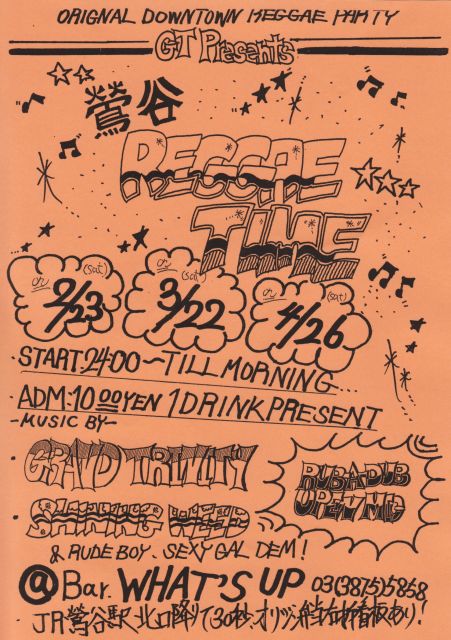 ORIGNAL DOWNTOWN REGGAE PARTY
GT Presents
鶯谷
REGGAE
TIME
on (sat) 2/23
on (sat) 3/22
on (sat) 4/26
START:24:00~TILL MORNING...
ADM:1000YEN 1DRINK PRESENT
-MUSIC BY-
GRAND TRINITY
RUB A DUB
OPENING
SHINING WEED
& RUDE BOY. SEXY GAL DEM!
@Bar. WHAT'S UP 03(3875)5858
JR鶯谷駅北口降りて30秒オリジン弁当右折看板あり!